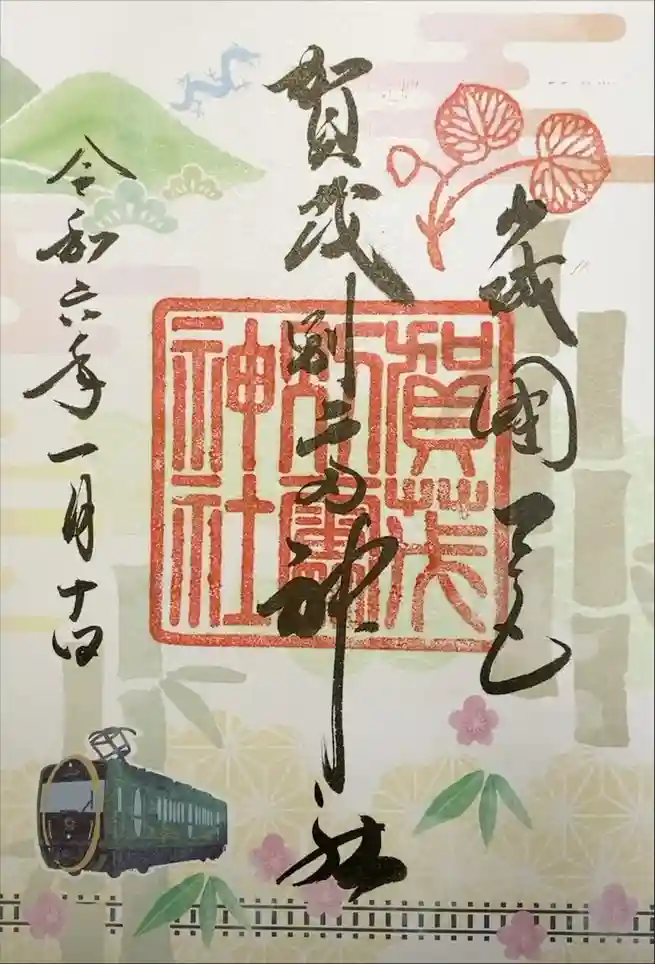 山城國一之宮
賀茂別雷神社
令和六年一月十四
賀茂
別雷
神社